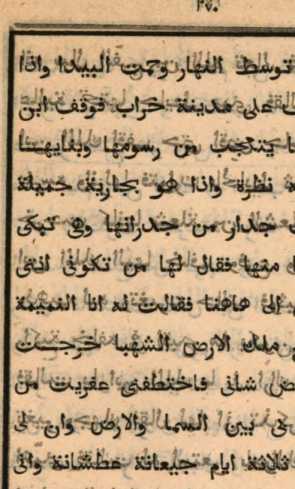 ٢٧٠
توسط النهار وحمت البيدا واذا
على مدينة خراب فوقف ابن
يتعجب من رسومها وبقايهنا
نظرة واذا هو بجارية جميلة
جدار من جدرانها وهى تبكى
منها فقال لها من تكونى انتى
الى هاهنا فقالت له انا التميمة
ملك الارض الشهبا خرجت
شانى فاختطفنى عفريت من
بين السما والارض وان لى
ثلاثة ايام جيعانة عطشانة وانى